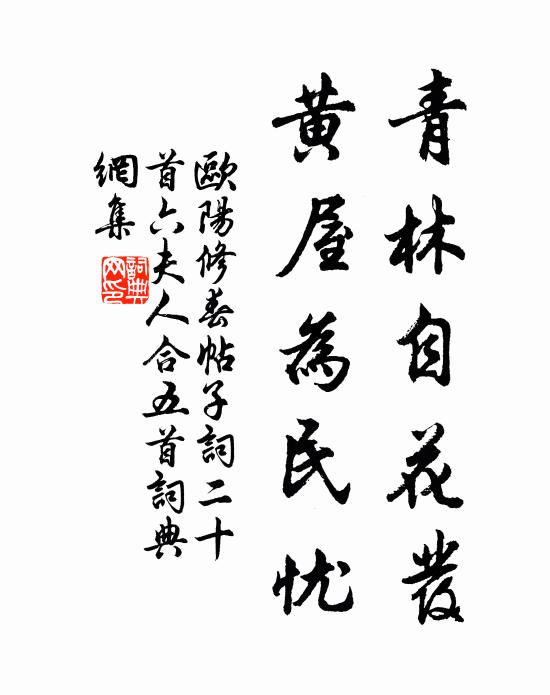 青林自花發
黄屋為民忧
歐陽修春帖子詞二十
首六夫人合五首詞典
網集
詞典
网印